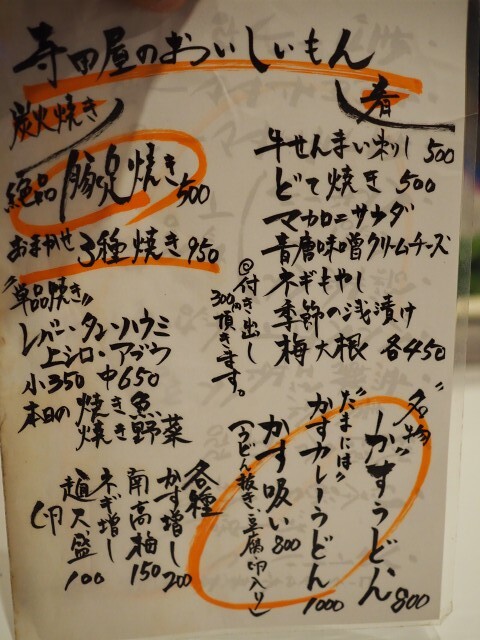 寺田屋のおついしぃもん
炭火焼き
絶品 豚足焼き 500
おまかせ 3種焼き 950
"単品焼き"
レバー・タン・ハラミ
上シロ・アブラ
小350 中650
本日の焼き魚
焼き野菜
肴
牛せんまい刺し 500
どて焼き 500
マカロニサラダ
青唐味噌クリームチーズ
ネギもやし
季節の浅漬け
梅大根 各450
◎付き出し
300円頂きます。
名物
"かすうどん" 800
"たまには"
かすカレーうどん 1000
かす吸い 800
(うどん抜き、豆腐、卵入り)
各種
かす増し 200
南高梅 150
ネギ増し
麺大盛 100
卵